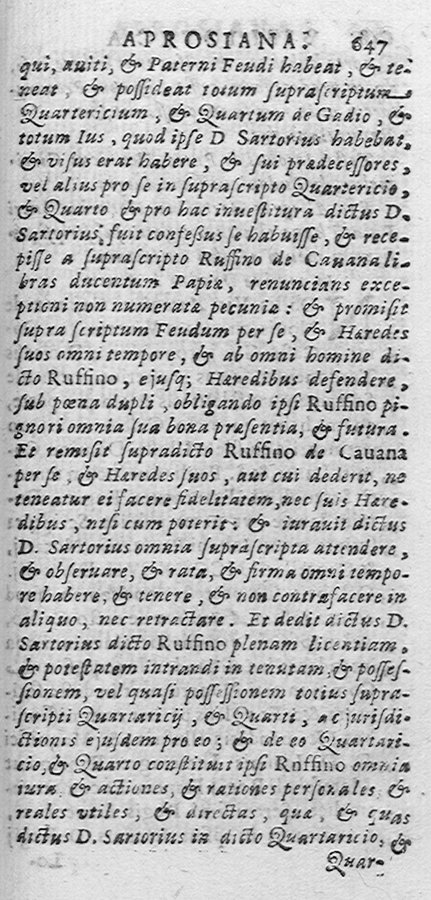 APROSIANA. 647
qui, aviti, & Paterni Feudi habeat, & te-
neat, & possideat totum suprascriptum
Quartericium, & Quartum de Gadio, &
totum Ius, quod ipse D Sartorius habebat,
& visus erat habere, & sui prædecessores,
vel alius pro se in suprascripto Quartericio,
& Quarto & pro hac investitura dictus D.
Sartorius, fuit confeßus se habuisse, & rece-
pisse a suprascripto Ruffino de Cauana li-
bras ducentum Papiæ, renuncians exce-
ptioni non numeratæ pecuniæ: & promisit
supra scriptum Feudum per se, & Hæredes
suos omni tempore, & ab omni homine di-
cto Ruffino, ejusq; Hæredibus defendere,
sub pœna dupli, obligando ipsi Ruffino pi-
gnori omnia sua bona præsentia, & futura.
Et remisit supradicto Ruffino de Cauana
per se, & Hæredes suos, aut cui dederit, ne
teneatur ei facere fidelitatem, nec suis Hære-
dibus, nisi cum poterit: & iurauit dictus
D. Sartorius omnia suprascripta attendere,
& obseruare, & rata, & firma omni tempo-
re habere, & tenere, & non contrafacere in
aliquo, nec retractare. Et dedit dictus D.
Sartorius dicto Ruffino plenam licentiam,
& potestatem intrandi in tenutam, & posses-
sionem, vel quasi possessionem totius supra-
scripti Quartaricij, & Quarti, ac jurisdi-
ctionis ejusdem pro eo; & de eo Quartari-
cio, & Quarto constituit ipsi Ruffino omnia
iura, & actiones, & rationes personales &
reales vtiles, & directas, quæ, & quas
dictus D. Sartorius in dicto Quartaricio, &
Quar-